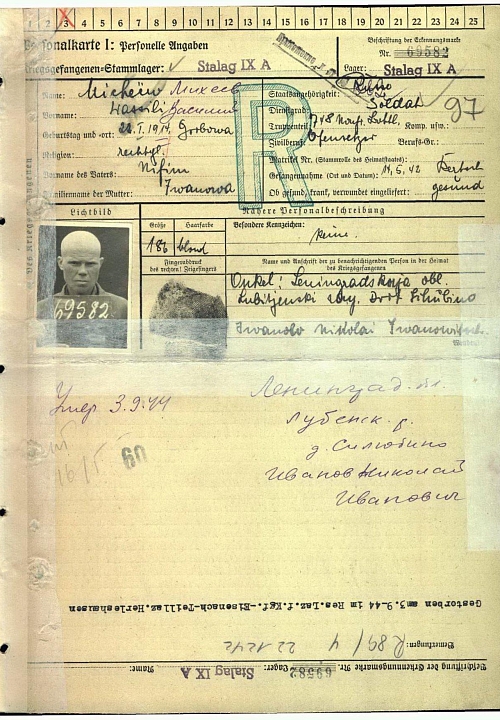 1 2 3 4 5 6 7 8 9 10 11 12 13 14 15 16 17 18 19 20 21 22 23 24 25
Personalkarte I: Personelle Angaben
Beschriftung der Erkennungsmarke
Nr. 69582
Kriegsgefangenen-Stammlager: Stalag IX A
Lager: Stalag IX A
Name: Michejew Михеев
Staatsangehörigkeit: Russe
Vorname: Wassili Василий
Dienstgrad: Soldat
97
Truppenteil: 718 Komp. usw.:
Geburtstag und -ort: 22.I.1914 Gorbowa
Zivilberuf: Ofensetzer Berufs-Gr.:
Religion: rechtgl.
Matrikel Nr. (Stammrolle des Heimatstaates):
Vorname des Vaters: Nifim
Gefangennahme (Ort und Datum): 14.5.42 Kertsch
Familienname der Mutter: Iwanowa
Ob gesund, krank, verwundet eingeliefert: gesund
R
Lichtbild
Nähere Personalbeschreibung
Größe Haarfarbe Besondere Kennzeichen:
186 blond keine.
Fingerabdruck
des rechten! Zeigefingers
Name und Anschrift der zu benachrichtigenden Person in der Heimat
des Kriegsgefangenen
69582
Onkel: Leningradskaja obl.
Iwanow Nikolai Iwanowitsch
Умер 3.9.44
Ленинград. обл.
д. Силюбино
16/I 60
Иванов Николай
Иванович
Gestorben am 3.9.44 im Res.Laz.f.Kgf.-Eisenach-Teillaz.Herleshausen
Bemerkungen: R 89/4 22.12.42
Beschriftung der Erkennungsmarke Nr. 69582 Lager: Stalag IX A Name: